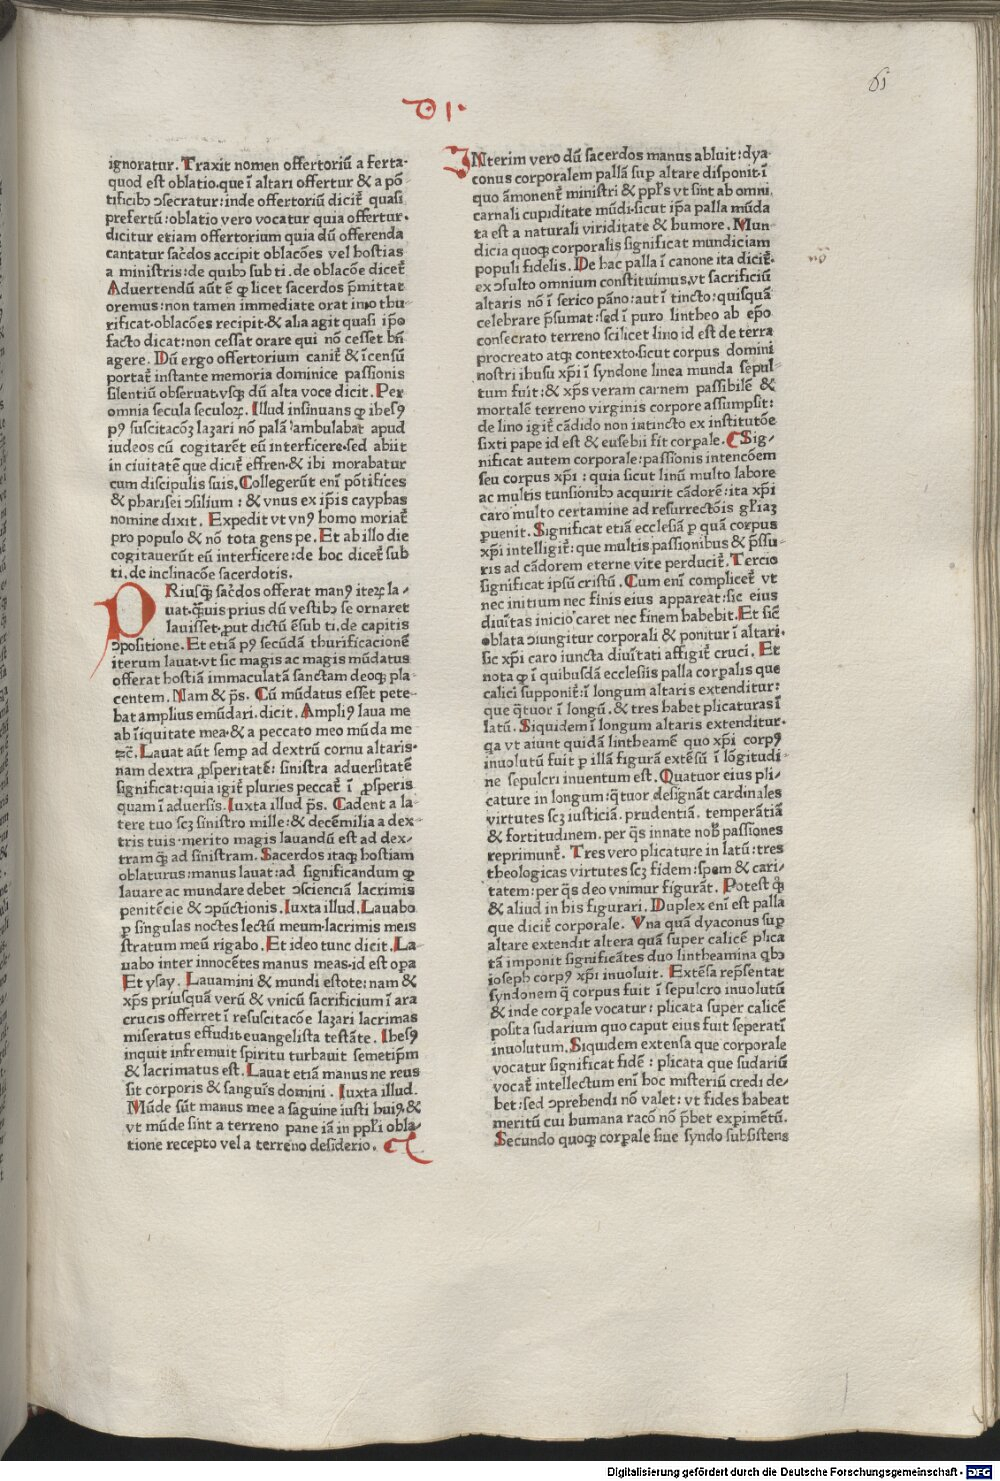 61
ignoratur. Traxit nomen offertoriū a ferta-
quod est oblatio. que ī altari offertur & a pō-
tificibꝫ ↄsecratur: inde offertoriū dicit̄ quasi
prefertū: oblatio vero vocatur quia offertur.
dicitur etiam offertorium quia dū offerenda
cantatur sac̄dos accipit oblacōes vel hostias
a ministris: de quibꝫ sub ti. de oblacōe dicet̄
Aduertendū aūt ē ꝙ licet sacerdos p̄mittat
oremus: non tamen immediate orat imo thu-
rificat. oblacōes recipit. & alia agit quasi ip̄o
facto dicat: non cessat orare qui nō cesset bn̄
agere. Dū ergo offertorium canit̄ & īcensū
portat̄ instante memoria dominice passionis
silentiū obseruat. vsqꝫ dū alta voce dicit. Per
omnia secula seculoꝝ. Illud insinuans ꝙ ihesꝰ
pꝰ suscitacōꝫ lazari nō palā ambulabat apud
iudeos cū cogitarēt eū interficere. sed abiit
in ciuitatē que dicit̄ effren. & ibi morabatur
cum discipulis suis. Collegerūt enī pōtifices
& pharisei ↄsilium: & vnus ex ip̄is cayphas
nomine dixit. Expedit vt vnꝰ homo moriat̄
pro populo & nō tota gens pe. Et ab illo die
cogitauerūt eū interficere: de hoc dicet̄ sub
ti. de inclinacōe sacerdotis.
PRiusqꝫ sac̄dos offerat manꝰ iteꝝ la-
uat. qꝫuis prius dū vestibꝫ se ornaret
lauisset. ꝓut dictū ē sub ti. de capitis
ↄpositione. Et etiā pꝰ secūdā thurificacionē
iterum lauat. vt sic magis ac magis mūdatus
offerat hostiā immaculatā sanctam deoqꝫ pla-
centem. Nam & p̄s. Cū mūdatus esset pete-
bat amplius emūdari. dicit. Ampliꝰ laua me
ab īiquitate mea. & a peccato meo mūda me
⁊c̄. Lauat aūt semꝑ ad dextrū cornu altaris.
nam dextra ꝓsperitatē: sinistra aduersitatē
significat: quia igit̄ pluries peccat̄ ī ꝓsperis
quam ī aduersis. Iuxta illud p̄s. Cadent a la-
tere tuo scꝫ sinistro mille: & decēmilia a dex-
tris tuis. merito magis lauandū est ad dex-
tram qꝫ ad sinistram. Sacerdos itaqꝫ hostiam
oblaturus: manus lauat: ad significandum ꝙ
lauare ac mundare debet ↄscienciā lacrimis
penitēcie & ↄpūctionis. Iuxta illud. Lauabo
ꝑ singulas noctes lectū meum. lacrimis meis
stratum meū rigabo. Et ideo tunc dicit. La-
uabo inter innocētes manus meas. id est opa
Et ysay. Lauamini & mundi estote: nam &
xp̄s priusquā verū & vnicū sacrificium ī ara
crucis offerret ī resuscitacōe lazari lacrimas
miseratus effudit. euangelista testāte. Ihesꝰ
inquit infremuit spiritu turbauit semetip̄m
& lacrimatus est. Lauat etiā manus ne reus
sit corporis & sanguīs domini. Iuxta illud.
Mūde sūt manus mee a sāguine iusti huiꝰ. &
vt mūde sint a terreno pane iā in pp̄ri obla-
tione recepto vel a terreno desiderio.
INterim vero dū sacerdos manus abluit: dya-
conus corporalem pallā suꝑ altare disponit. ī
quo āmonent̄ ministri & pp̄ls vt sint ab omni
carnali cupiditate mūdi. sicut ip̄a palla mūda
ta est a naturali viriditate & humore. Mun-
dicia quoqꝫ corporalis significat mundiciam
populi fidelis. De hac palla ī canone ita dicit̄.
ex ↄsulto omnium constituimus. vt sacrificiū
altaris nō ī serico pāno: aut ī tincto: quisquā
celebrare p̄sumat: sed ī puro lintheo ab ep̄o
consecrato terreno scilicet lino id est de terra
procreato atqꝫ contexto. sicut corpus domini
nostri ihusu xp̄i ī syndone linea munda sepul-
tum fuit: & xp̄s veram carnem passibilē &
mortalē terreno virginis corpore assumpsit:
de lino igit̄ cādido non intincto ex institutōe
sixti pape id est & eusebii fit corpale. Sig-
nificat autem corporale: passionis intencōem
seu corpus xp̄i: quia sicut linū multo labore
ac multis tunsionibꝫ acquirit cādorē: ita xp̄i
caro multo certamine ad resurrectōis gl̄iaꝫ
ꝑuenit. Significat etiā ecclesiā ꝑ quā corpus
xp̄i intelligit̄: que multis passionibus & p̄ssu-
ris ad cādorem eterne vite perducit̄. Tercio
significat ipsū cristū. Cum enī complicet̄ vt
nec initium nec finis eius appareat: sic eius
diuītas inicio caret nec finem habebit. Et sic̄
oblata ↄiungitur corporali & ponitur ī altari.
sic xp̄i caro iuncta diuītati affigit̄ cruci. Et
nota ꝙ ī quibusdā ecclesiis palla corpalis que
calici supponit̄: ī longum altaris extenditur:
que q̄tuor ī longū. & tres habet plicaturas ī
latū. Siquidem ī longum altaris extenditur.
qa vt aiunt quidā lintheamē quo xp̄i corpꝰ
inuolutū fuit ꝑ illā figurā extēsū ī lōgitudi-
ne sepulcri inuentum est. Quatuor eius pli-
cature in longum: q̄tuor designāt cardinales
virtutes scꝫ iusticiā. prudentiā. temperātiā
& fortitudinem. per q̄s innate nob̄ passiones
reprimunt̄. Tres vero plicature in latū: tres
theologicas virtutes scꝫ fidem: spem & cari-
tatem: per q̄s deo vnimur figurāt. Potest qꝫ
& aliud in his figurari. Duplex enī est palla
que dicit̄ corporale. Vna quā dyaconus suꝑ
altare extendit altera quā super calicē plica
tā imponit significātes duo lintheamina qbꝫ
ioseph corpꝰ xp̄i inuoluit. Extēsa rep̄sentat
syndonem q̄ corpus fuit ī sepulcro inuolutū
& inde corpale vocatur: plicata super calicē
posita sudarium quo caput eius fuit seperatī
inuolutum. Siquidem extensa que corporale
vocatur significat fidē: plicata que sudariū
vocat̄ intellectum enī hoc misteriū credi de-
bet: sed ↄprehendi nō valet: vt fides habeat
meritū cui humana racō nō p̄bet expimētū.
Secundo quoqꝫ corpale siue syndo subsistens
nō
Digitalisierung gefördert durch die Deutsche Forschungsgemeinschaft - DFG